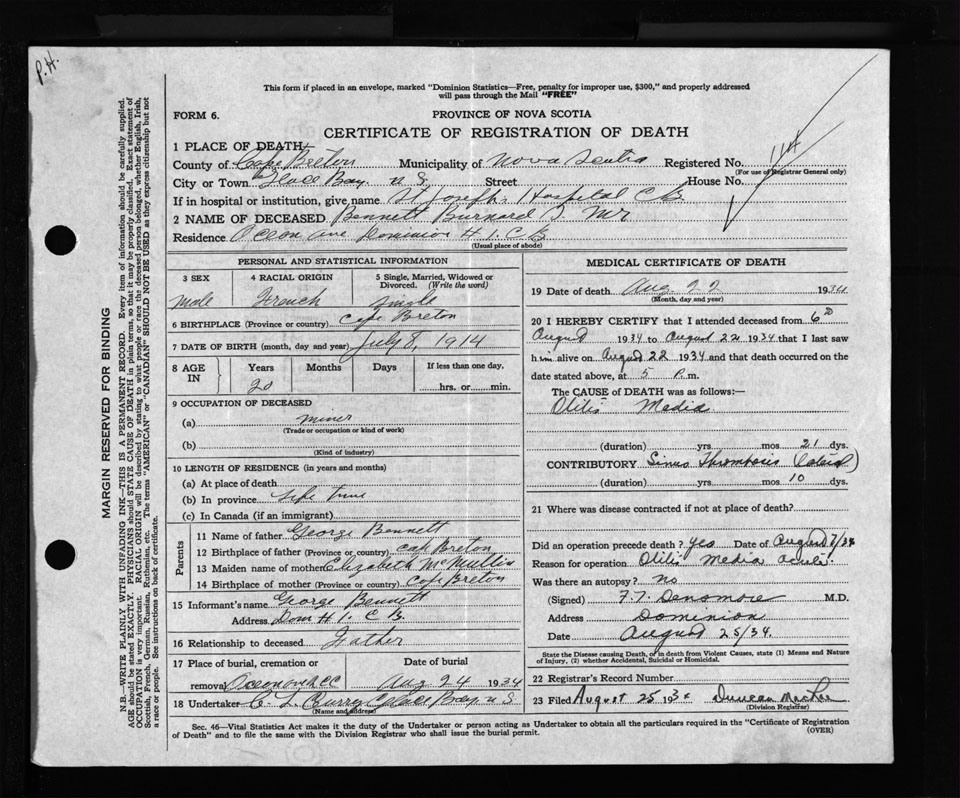 P.H.
This form if placed in an envelope, marked "Dominion Statistics—Free, penalty for improper use, $300," and properly addressed
will pass through the Mail "FREE"
FORM 6.
PROVINCE OF NOVA SCOTIA
CERTIFICATE OF REGISTRATION OF DEATH
1 PLACE OF DEATH
County of Cape Breton Municipality of Nova Scotia Registered No.
(For use of Registrar General only)
City or Town Glace Bay. N S. Street House No.
If in hospital or institution, give name St Joseph's Hospital C B.
2 NAME OF DECEASED Bennett Burnard J. Mr
Residence Ocean Ave Dominion # 1. C B
(Usual place of abode)
PERSONAL AND STATISTICAL INFORMATION
3 SEX
male
4 RACIAL ORIGIN
French
5 Single, Married, Widowed or Divorced. (Write the word)
single
6 BIRTHPLACE (Province or country) Cape Breton
7 DATE OF BIRTH (month, day and year) July 8, 1914
8 AGE IN
Years Months Days If less than one day.
20 hrs. or min.
9 OCCUPATION OF DECEASED
(a) miner
(Trade or occupation or kind of work)
(b)
(Kind of industry)
10 LENGTH OF RESIDENCE (in years and months)
(a) At place of death
(b) In province life time
(c) In Canada (if an immigrant)
Parents
11 Name of father George Bennett
12 Birthplace of father (Province or country) Cape Breton
13 Maiden name of mother Elizabeth McMullin
14 Birthplace of mother (Province or country) Cape Breton
15 Informant's name George Bennett
Address Dom # 1. C B.
16 Relationship to deceased Father
17 Place of burial, cremation or removal
Date of burial
Aug 24 1934
18 Undertaker C. L. Curry Glace Bay N S
(Name and address)
MEDICAL CERTIFICATE OF DEATH
19 Date of death Aug 22 1934
(Month, day and year)
20 I HEREBY CERTIFY that I attended deceased from 6th
August 1934 to August 22 1934 that I last saw
him alive on August 22 1934 and that death occurred on the
date stated above, at 5 P.m.
The CAUSE of DEATH was as follows:
Otitis Media
(duration) yrs mos 21 dys.
CONTRIBUTORY Sinus Thrombosis
(duration) yrs. mos 10 dys.
21 Where was disease contracted if not at place of death?
Did an operation precede death? Yes Date of August 7/34
Reason for operation Otitis Media acute.
Was there an autopsy? No
(Signed) F. T. Densmore M.D.
Address Dominion
Date August 25/34.
State the Disease causing Death, or in death from Violent Causes, state (1) Means and Nature
of Injury, (2) whether Accidental, Suicidal or Homicidal.
22 Registrar's Record Number
23 Filed August 25 1934 Duncan MacRae
(Division Registrar)
Sec. 46—Vital Statistics Act makes it the duty of the Undertaker or person acting as Undertaker to obtain all the particulars required in the "Certificate of Registration
of Death" and to file the same with the Division Registrar who shall issue the burial permit.
(OVER)
MARGIN RESERVED FOR BINDING
N.B.—WRITE PLAINLY WITH UNFADING INK—THIS IS A PERMANENT RECORD. Every item of information should be carefully supplied.
AGE should be stated EXACTLY. PHYSICIANS should STATE CAUSE OF DEATH in plain terms, so that it may be properly classified. Exact statement of
OCCUPATION is very important. RACIAL ORIGIN will be described by stating to what people or race the deceased person belonged, whether English, Irish,
Scottish, French, German, Russian, Ruthenian, etc. The terms "AMERICAN" or "CANADIAN" SHOULD NOT BE USED as they express citizenship but not
a race or people. See instructions on back of certificate.